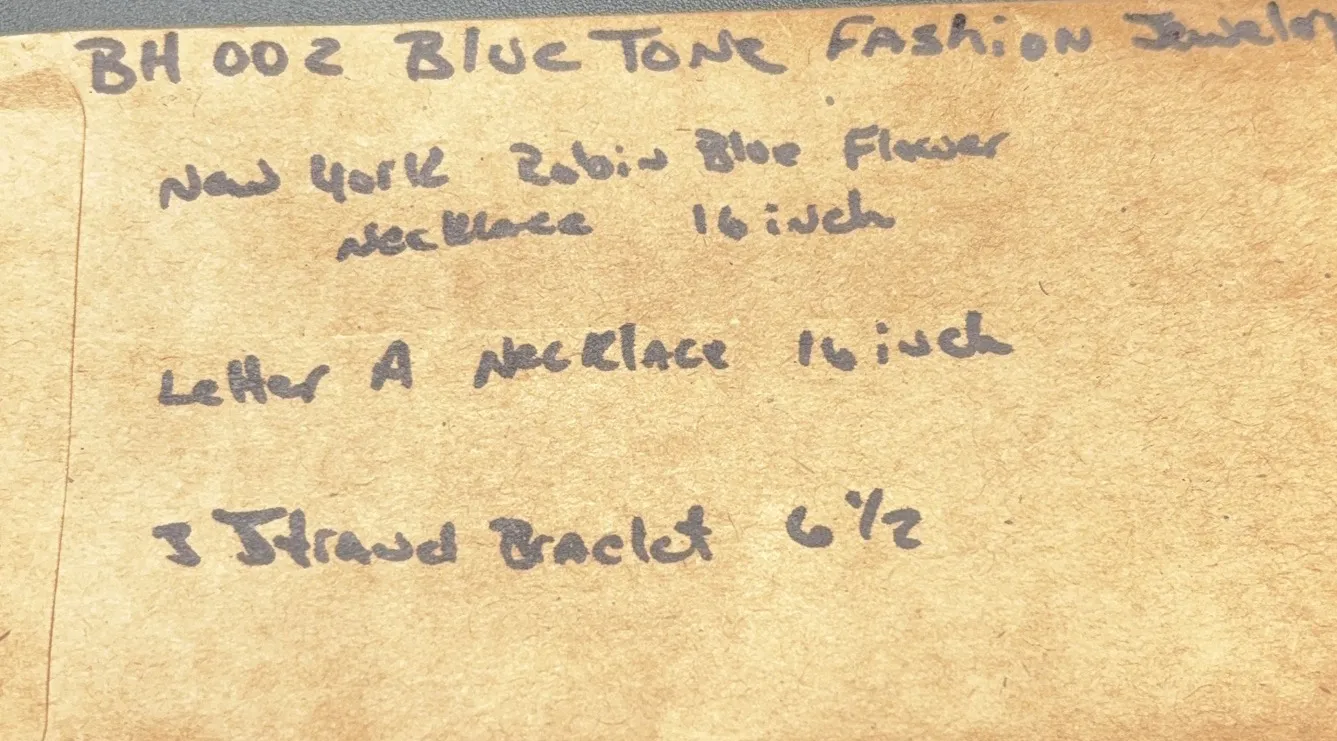 BH 002 Blue Tone Fashion Jewelry
New York Robin Blue Flower
Necklace 16 inch
Letter A Necklace 16 inch
3 Strand Braclet 6 1/2